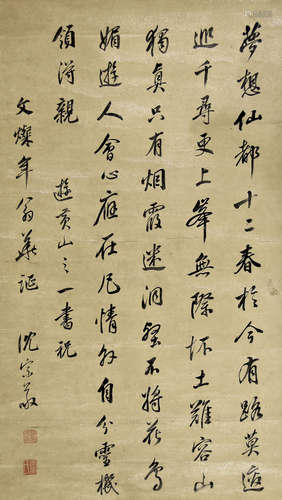 夢想仙都十二春於今有路莫逡
巡千尋更上峯無際坏土難容山
獨真只有烟霞迷洞壑不將花鳥
媚遊人會心應在凡情外自分雪機
領得親
遊黃山之一書祝
文燦年翁華誕
沈宗敬